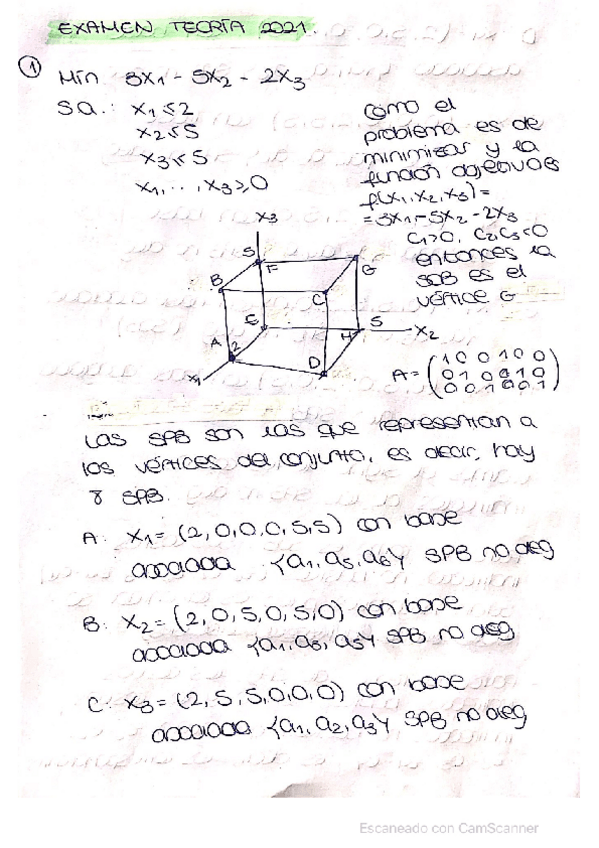 EXAMEN TEORÍA 2021.
① Min 3x1 - 5x2 - 2x3
s.a.: x1 ≤ 2
x2 ≤ 5
x3 ≤ 5
x1, ..., x3 ≥ 0
como el
problema es de
minimizar y la
función objetivo es
f(x1, x2, x3) =
= 3x1 - 5x2 - 2x3
C1>0, C2, C3<0
entonces la
SOB es el
vértice G
x3
5 F G
B C
E 5
A 2 H x2
x1 D
A = (1 0 0 1 0 0
0 1 0 0 1 0
0 0 1 0 0 1)
Las SPB son las que representan a
los vértices del conjunto, es decir, hay
8 SPB.
A: x1 = (2, 0, 0, 0, 5, 5) con base
asociada {a1, a5, a6} SPB no deg
B: x2 = (2, 0, 5, 0, 5, 0) con base
asociada {a1, a3, a5} SPB no deg
C: x3 = (2, 5, 5, 0, 0, 0) con base
asociada {a1, a2, a3} SPB no deg
Escaneado con CamScanner